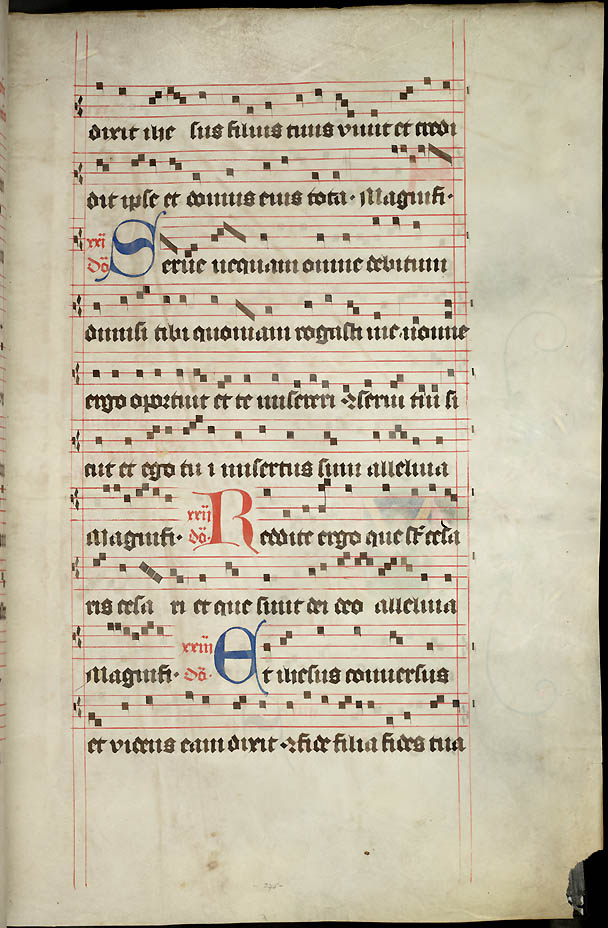 dixit ihe sus filius tuus viuit et credi
dit ipse et domus eius tota· Magnifi·
xxi
dō Serue nequam omne debitum
dimisi tibi quoniam rogasti me nonne
ergo oportuit et te misereri ⁊serui tui si
cut et ego tu i misertus sum alleluia
xxij
Magnifi· dō· Reddite ergo que st cesa
ris cesa ri et que sunt dei deo alleluia
xxiii
Magnifi· dō· Et ihesus conuersus
et videns eam dixit ·⁊fide filia fides tua